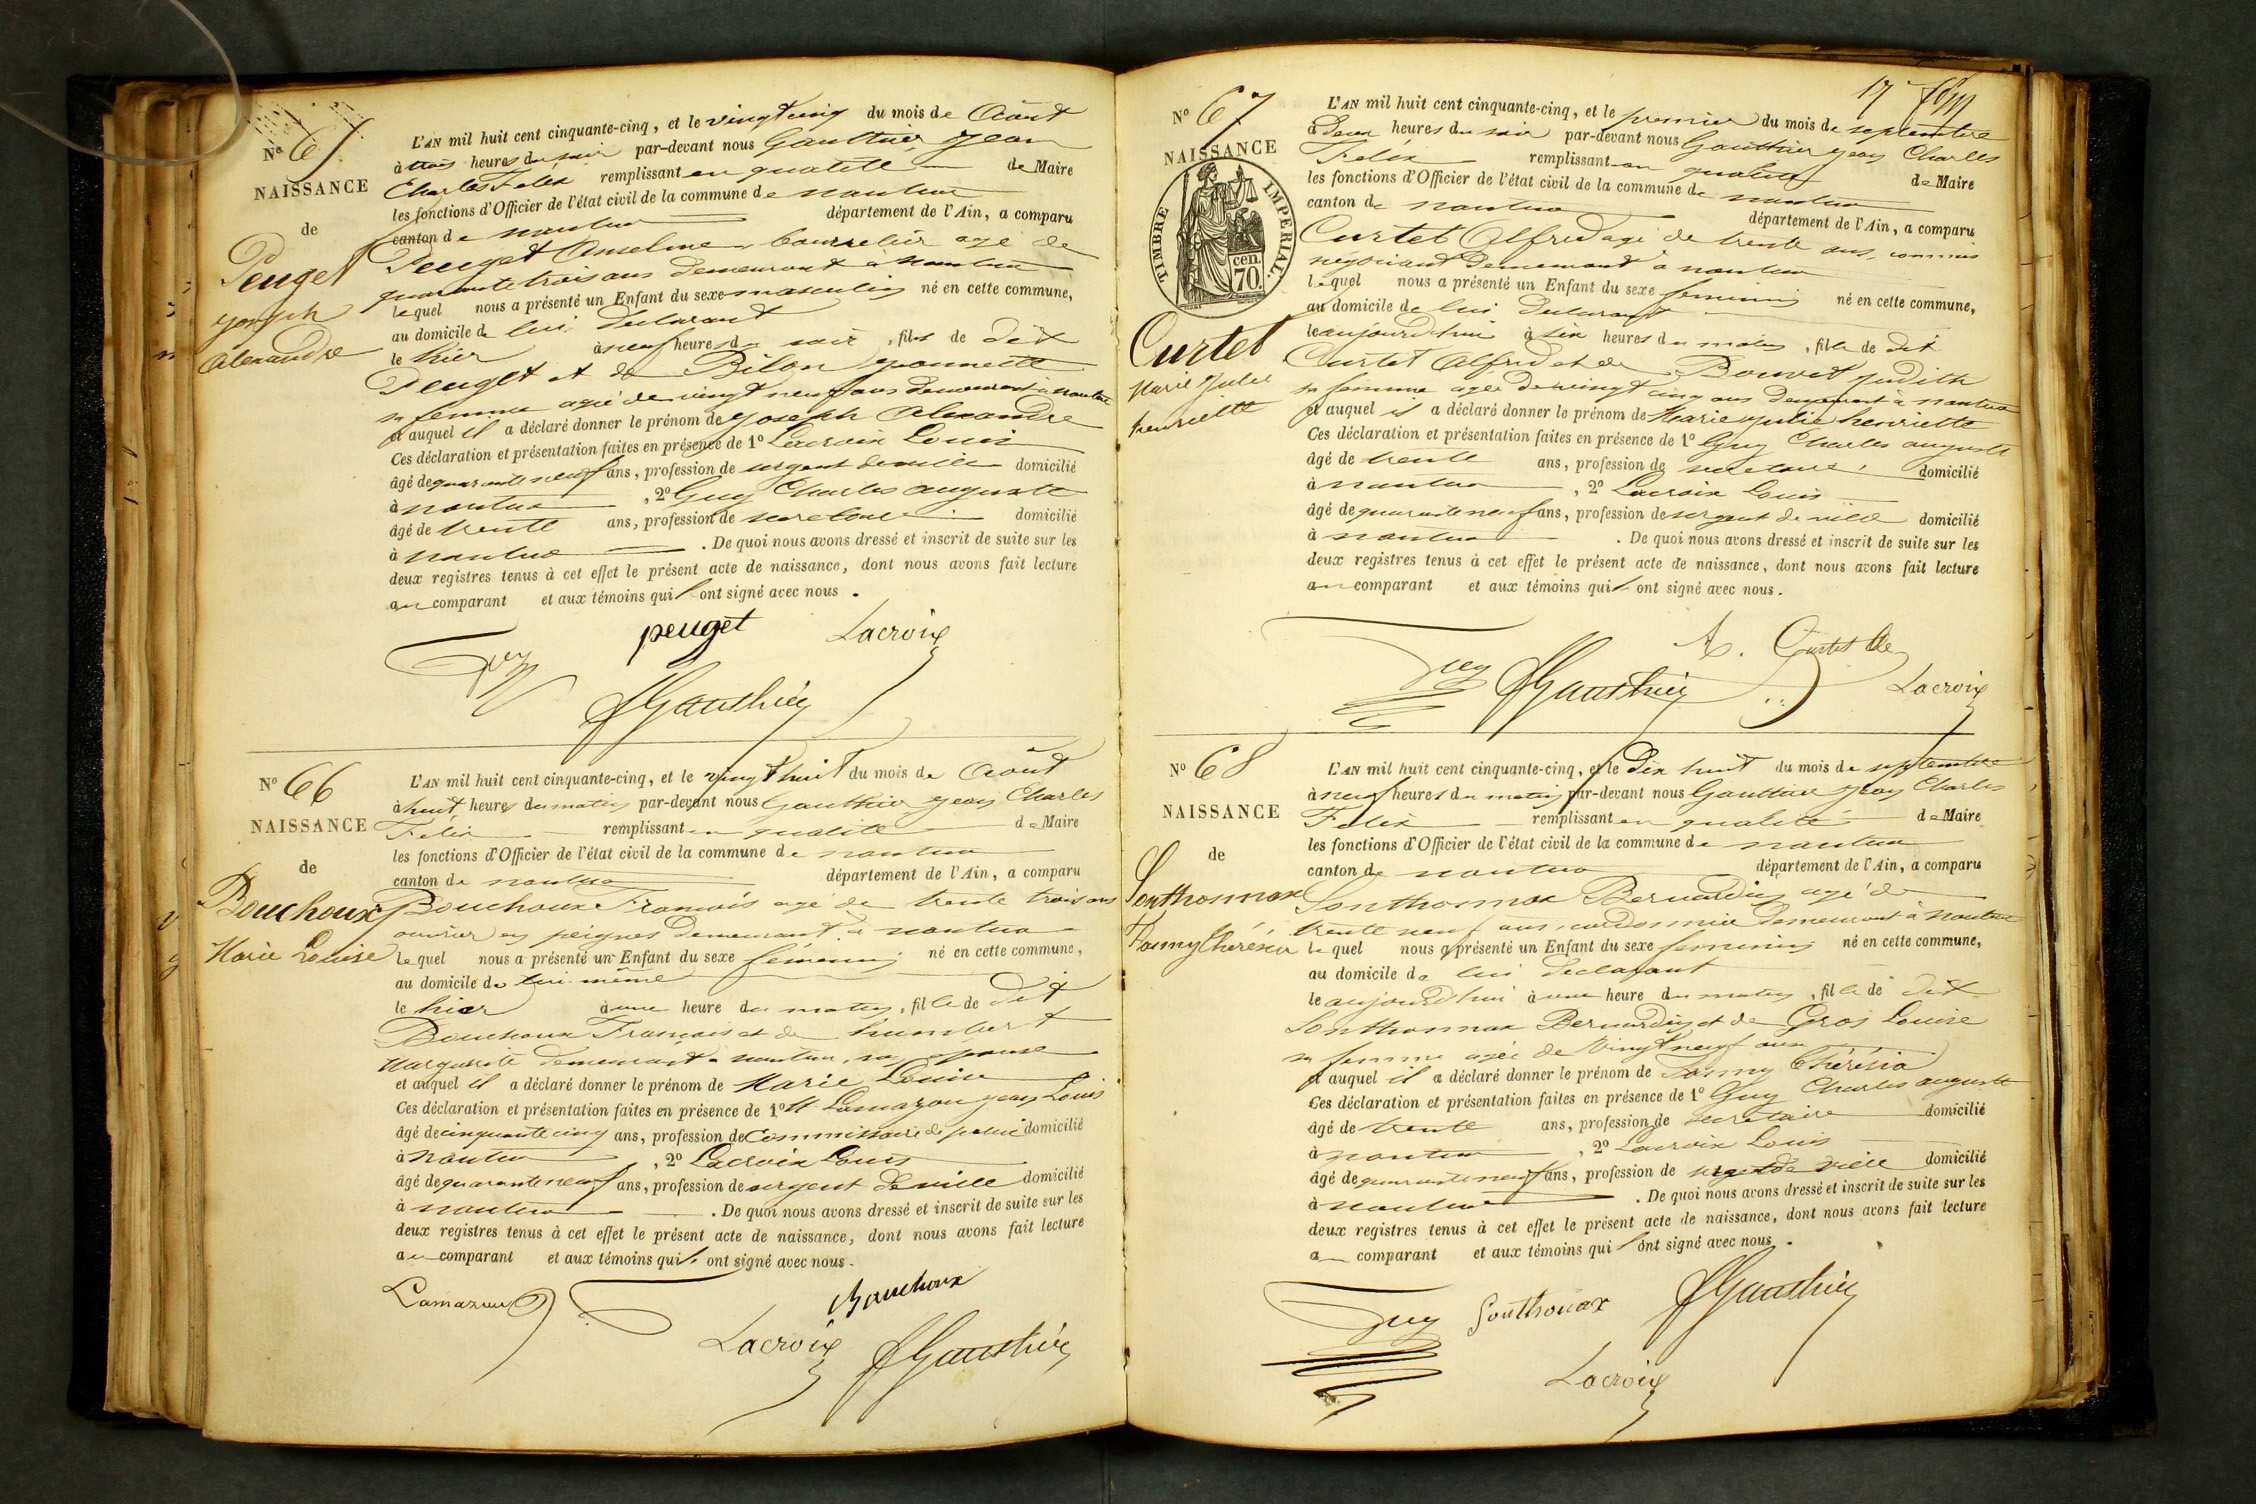 Nº 65
NAISSANCE
de
Peuget
Joseph
Alexandre
L'AN mil huit cent cinquante-cinq, et le vingt cinq du mois de Août
à trois heures du soir par-devant nous Gauthier Jean
Charles Felix remplissant en qualité de Maire
les fonctions d'Officier de l'état civil de la commune de nantua
canton de nantua département de l'Ain, a comparu
Peuget Anselme, bourrelier agé de
quarante trois ans demeurant à nantua
lequel nous a présenté un Enfant du sexe masculin né en cette commune,
au domicile de lui declarant
le hier à neuf heures du soir, fils de dit
Peuget et de Bilon
sa femme agée de vingt neuf ans demeurant à nantua
et auquel il a déclaré donner le prénom de Joseph Alexandre
Ces déclaration et présentation faites en présence de 1º Lacroix Louis
âgé de quarante neuf ans, profession de sergent de ville domicilié
à nantua, 2º Guy Charles auguste
âgé de trente ans, profession de secretaire domicilié
à nantua. De quoi nous avons dressé et inscrit de suite sur les
deux registres tenus à cet effet le présent acte de naissance, dont nous avons fait lecture
au comparant et aux témoins qui ont signé avec nous.
peuget Lacroix
Guy
Gauthier
Nº 66
NAISSANCE
de
Bouchoux
Marie Louise
L'AN mil huit cent cinquante-cinq, et le vingt huit du mois de Août
à huit heures du matin par-devant nous Gauthier Jean Charles
Felix remplissant en qualité de Maire
les fonctions d'Officier de l'état civil de la commune de nantua
canton de nantua département de l'Ain, a comparu
Bouchoux François agé de trente trois ans
ouvrier en peignes demeurant à nantua
lequel nous a présenté un Enfant du sexe féminin né en cette commune,
au domicile de lui même
le hier à une heure du matin, fille de dit
Bouchoux François et de humbert
Marguerite demeurant à nantua, son epouse
et auquel il a déclaré donner le prénom de Marie Louise
Ces déclaration et présentation faites en présence de 1º M Lamazou Jean Louis
âgé de cinquante cinq ans, profession de Commissaire de police domicilié
à nantua, 2º Lacroix Louis
âgé de quarante neuf ans, profession de sergent de ville domicilié
à nantua. De quoi nous avons dressé et inscrit de suite sur les
deux registres tenus à cet effet le présent acte de naissance, dont nous avons fait lecture
au comparant et aux témoins qui ont signé avec nous.
Lamazou Bouchoux
Lacroix Gauthier
17
Nº 67
NAISSANCE
TIMBRE IMPERIAL.
cen.
70.
Curtet
Marie Julie
henriette
L'AN mil huit cent cinquante-cinq, et le premier du mois de septembre
à deux heures du soir par-devant nous Gauthier Jean Charles
Felix remplissant en qualité de Maire
les fonctions d'Officier de l'état civil de la commune de nantua
canton de nantua département de l'Ain, a comparu
Curtet Alfred agé de trente ans, commis
negociant demeurant à nantua
lequel nous a présenté un Enfant du sexe feminin né en cette commune,
au domicile de lui declarant
le aujourd'hui à six heures du matin, fille de dit
Curtet Alfred et de Bouvet Judith
sa femme agée de vingt cinq ans demeurant à nantua
et auquel il a déclaré donner le prénom de Marie Julie henriette
Ces déclaration et présentation faites en présence de 1º Guy Charles auguste
âgé de trente ans, profession de secretaire domicilié
à nantua, 2º Lacroix Louis
âgé de quarante neuf ans, profession de sergent de ville domicilié
à nantua. De quoi nous avons dressé et inscrit de suite sur les
deux registres tenus à cet effet le présent acte de naissance, dont nous avons fait lecture
au comparant et aux témoins qui ont signé avec nous.
A. Curtet
Guy Gauthier Lacroix
Nº 68
NAISSANCE
de
Sonthonnax
Fanny Thérésia
L'AN mil huit cent cinquante-cinq, et le dix huit du mois de septembre
à neuf heures du matin par-devant nous Gauthier Jean Charles
Felix remplissant en qualité de Maire
les fonctions d'Officier de l'état civil de la commune de nantua
canton de nantua département de l'Ain, a comparu
Sonthonnax Bernardin agé de
trente neuf ans, cordonnier demeurant à nantua
lequel nous a présenté un Enfant du sexe feminin né en cette commune,
au domicile de lui declarant
le aujourd'hui à une heure du matin, fille de dit
Sonthonnax Bernardin et de Gros Louise
sa femme agée de vingt neuf ans
et auquel il a déclaré donner le prénom de Fanny Thérésia
Ces déclaration et présentation faites en présence de 1º Guy Charles auguste
âgé de trente ans, profession de secretaire domicilié
à nantua, 2º Lacroix Louis
âgé de quarante neuf ans, profession de sergent de ville domicilié
à nantua. De quoi nous avons dressé et inscrit de suite sur les
deux registres tenus à cet effet le présent acte de naissance, dont nous avons fait lecture
au comparant et aux témoins qui ont signé avec nous.
Guy Sonthonax Gauthier
Lacroix